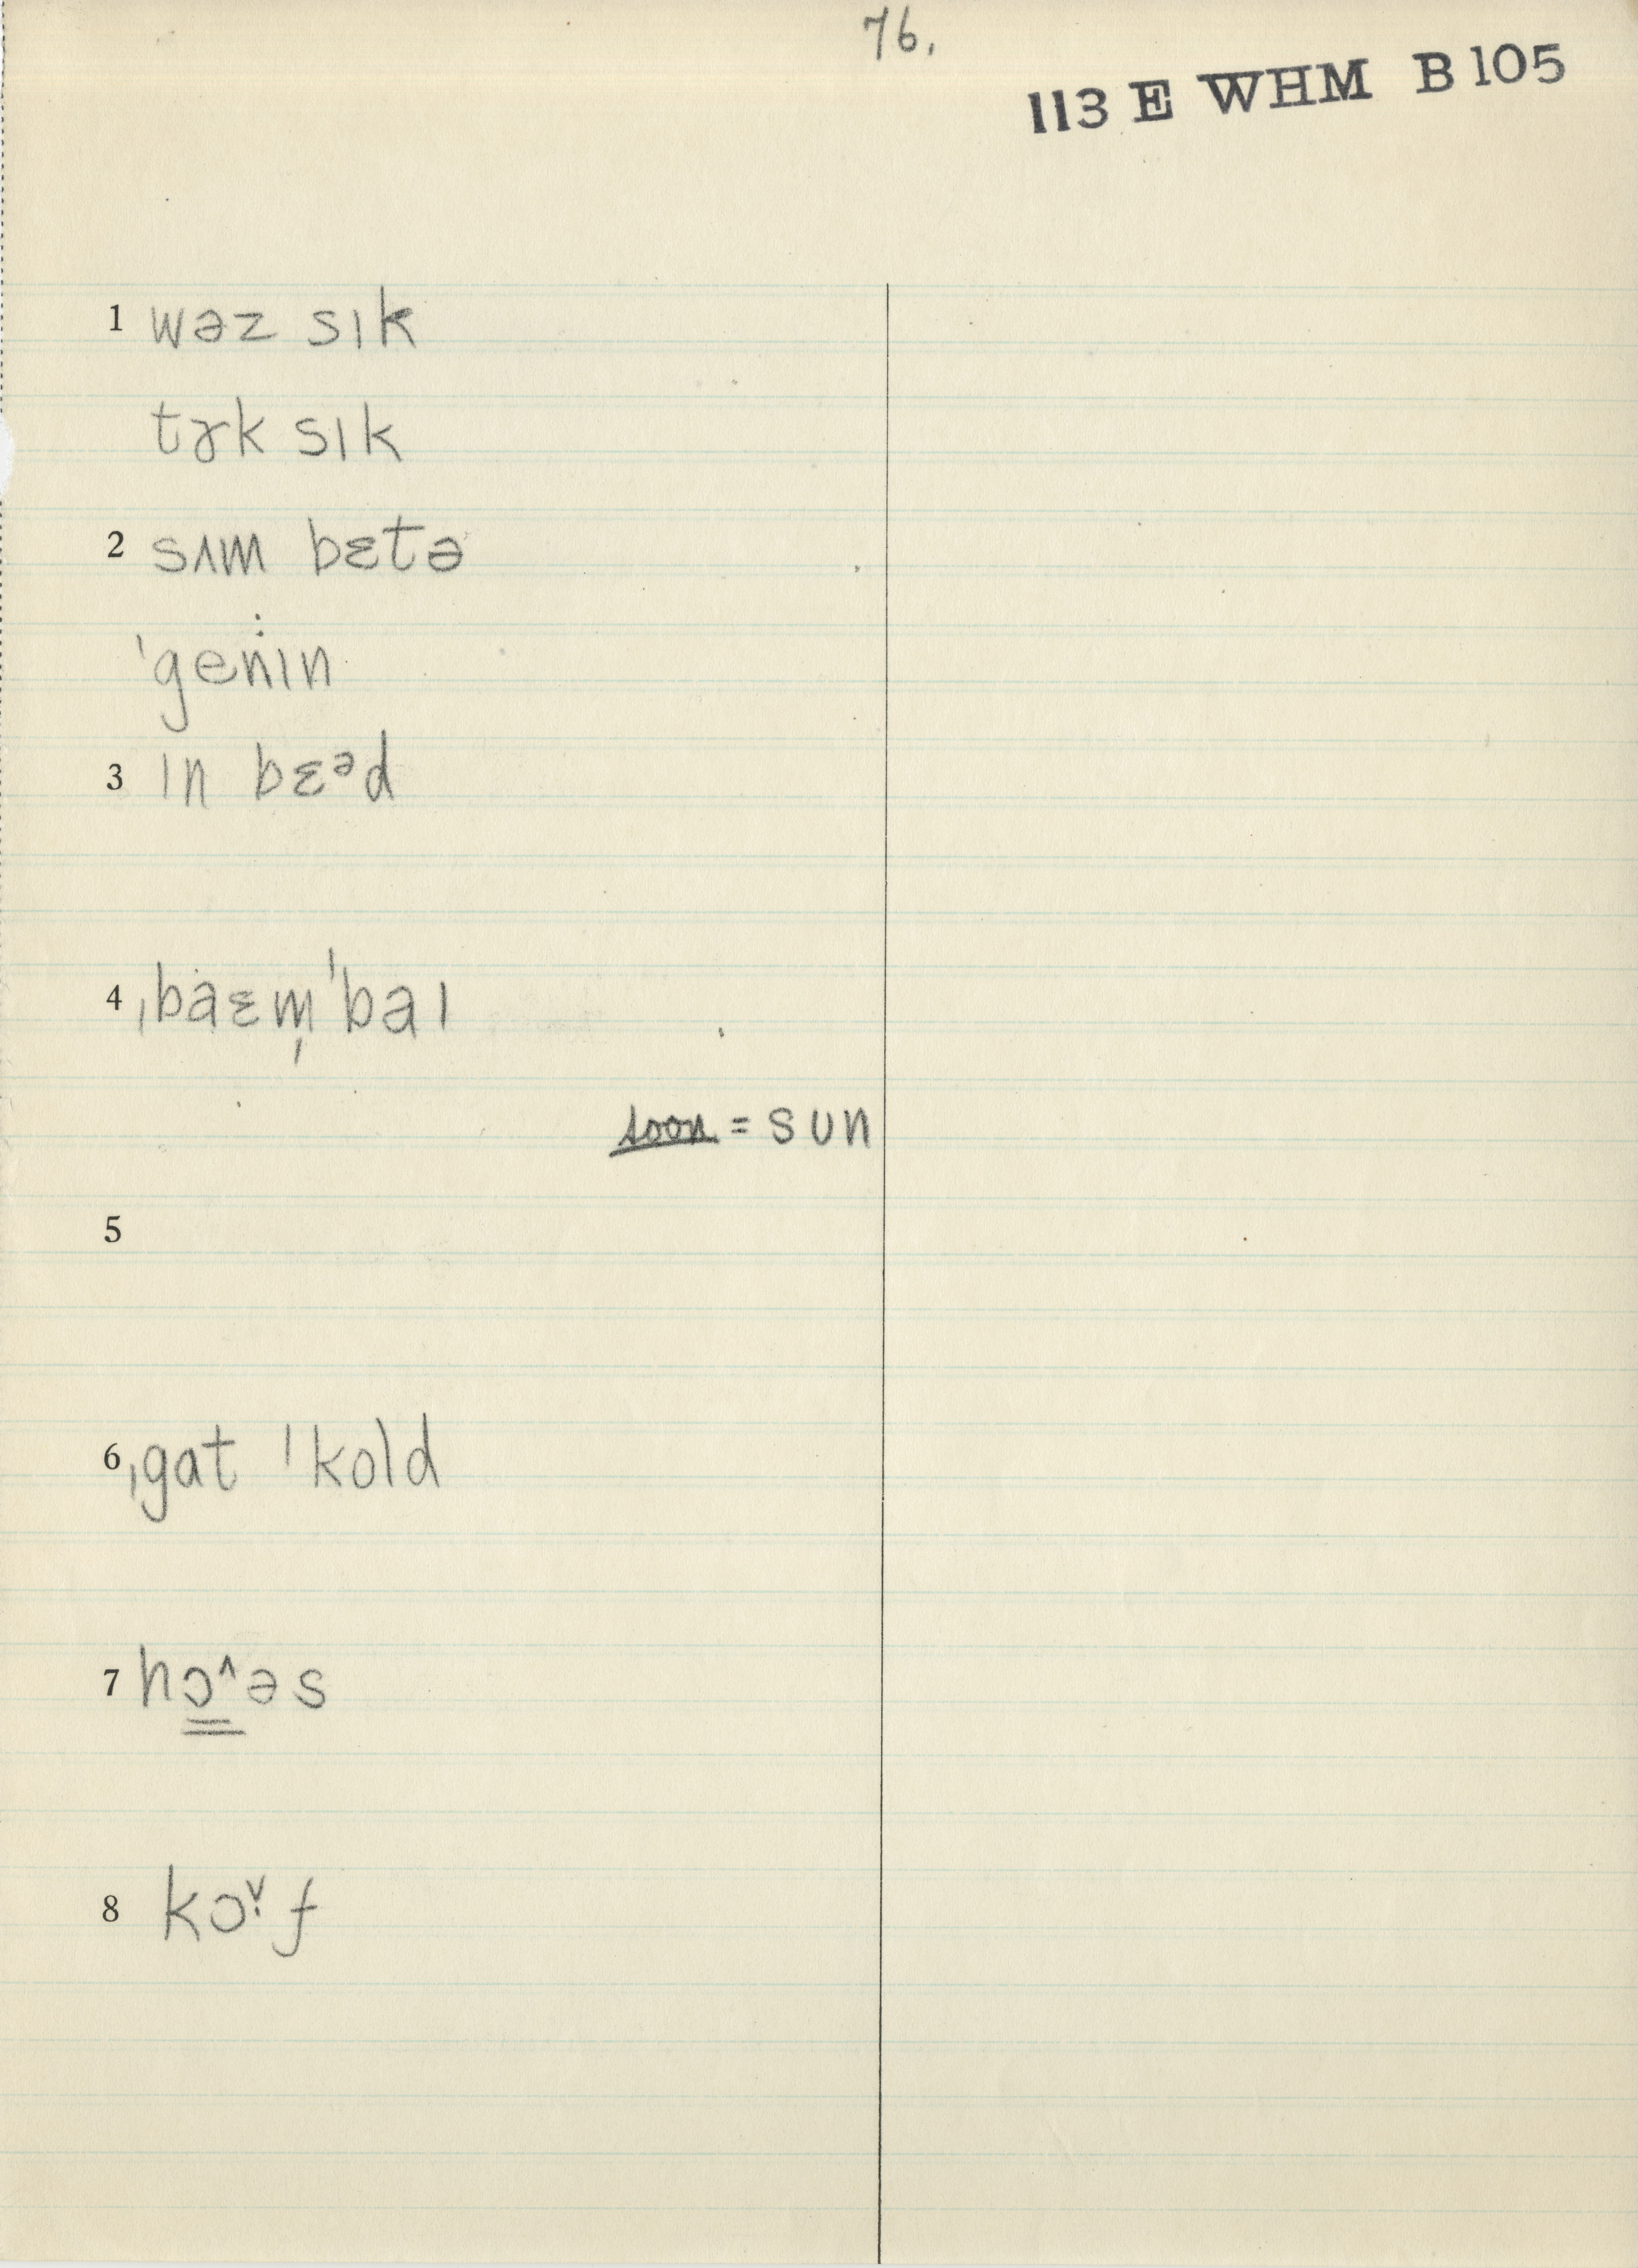 76.
113 E WHM B105
1 wəz sɪk
tɚk sɪk
2 sʌm bɛtə
ˈgenɪn
3 ɪn bɛᵊd
4 ˌbaɛm̩ˈbaɪ
soon = sun
5
6 ˌgat ˈkold
7 hɔ^əs
8 kɔˇ·f